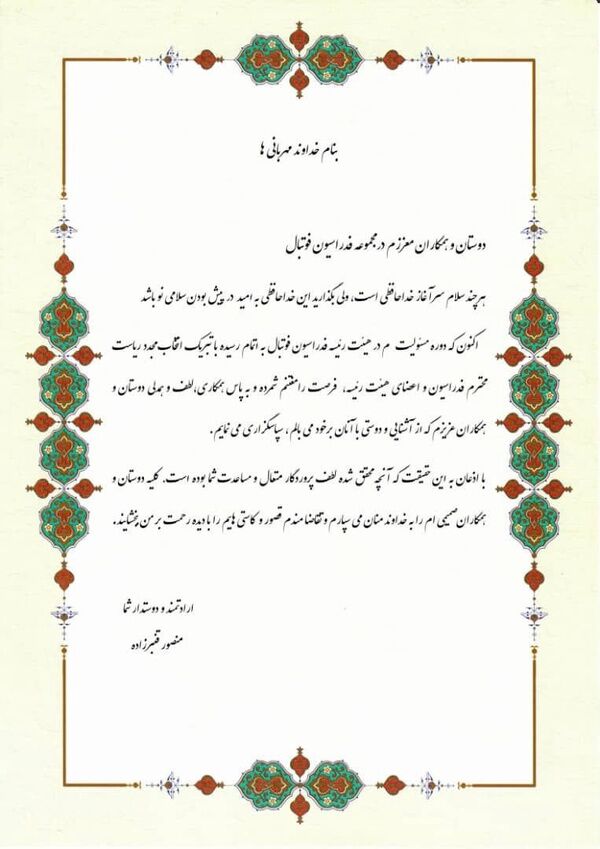 بنام خداوند مهربانی ها
دوستان و همکاران معززم در مجموعه فدراسیون فوتبال
هرچند سلام سرآغاز خداحافظی است، ولی بگذارید این خداحافظی به امید در پیش بودن سلامی نو باشد
اکنون که دوره مسئولیت م در هیئت رئیسه فدراسیون فوتبال به اتمام رسیده با تبریک انتخاب مجدد ریاست
محترم فدراسیون و اعضای هیئت رئیسه، فرصت را مغتنم شمرده و به پاس همکاری، لطف و همدلی دوستان و
همکاران عزیزم که از آشنایی و دوستی با آنان برخود می بالم، سپاسگزاری می نمایم.
با اذعان به این حقیقت که آنچه محقق شده لطف پروردگار متعال و مساعدت شما بوده است، کلیه دوستان و
همکاران صمیمی ام را به خداوند منان می سپارم و تقاضامندم قصور و کاستی هایم را با دیده رحمت بر من ببخشایند.
ارادتمند و دوستدار شما
منصور قنبرزاده